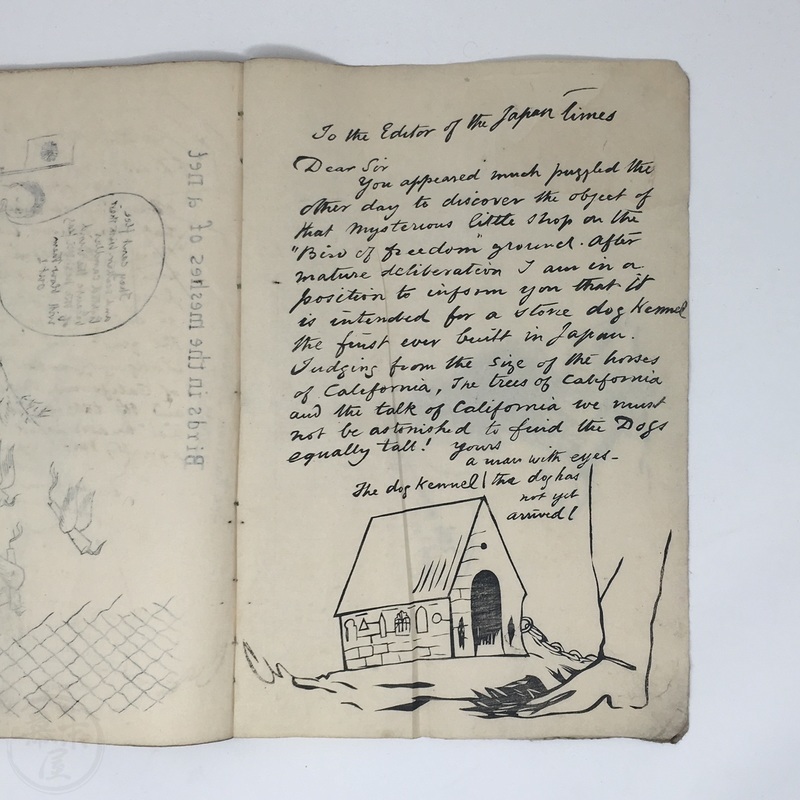 Birds in the meshes of a net
To the Editor of the Japan Times
Dear Sir
You appeared much puzzled the
other day to discover the object of
that mysterious little shop on the
"Bird of freedom" ground. After
mature deliberation I am in a
position to inform you that it
is intended for a stone dog Kennel
the first ever built in Japan.
Judging from the size of the horses
of California, The trees of California
and the talk of California we must
not be astonished to find the Dogs
equally tall!
Yours
a man with eyes-
The dog Kennel! the dog has
not yet
arrived!